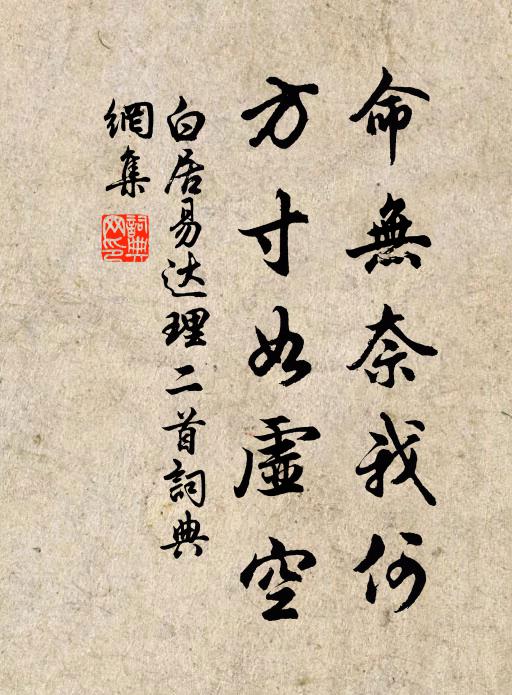 命無奈我何
方寸如虛空
白居易达理二首詞典
網集
詞典
网印